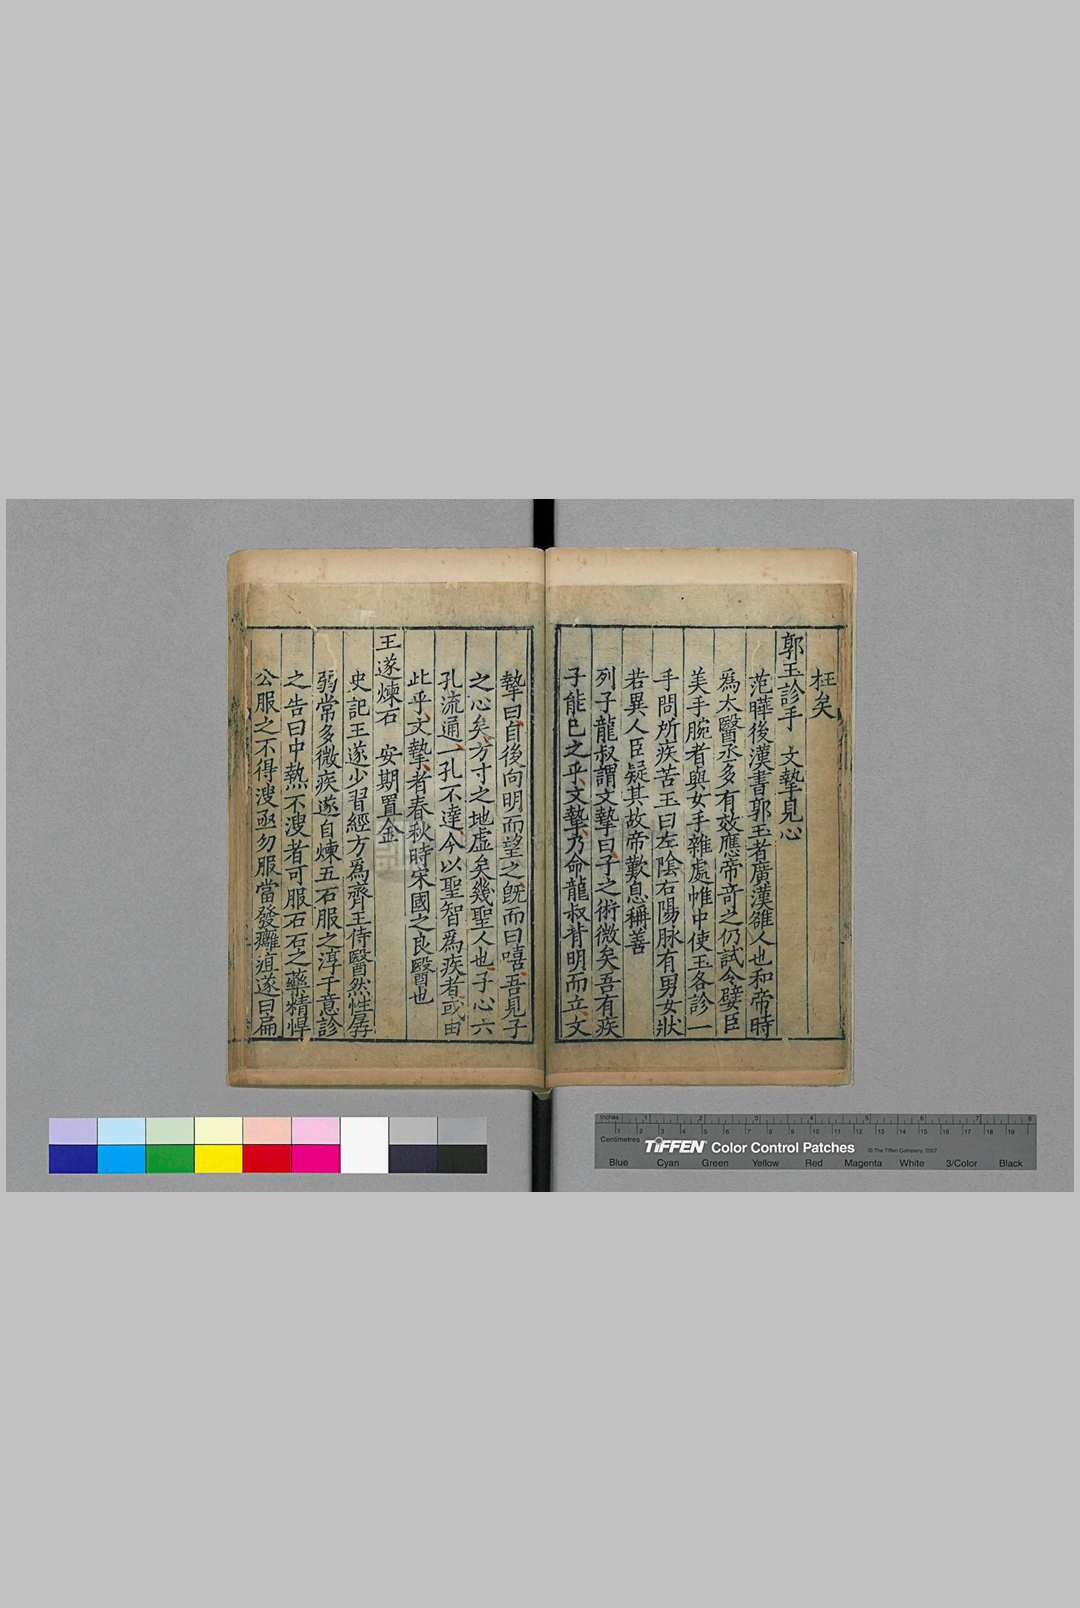 枉矣
郭玉診手 文摯見心
范曄後漢書郭玉者廣漢雒人也和帝時
爲太醫丞多有效應帝竒之仍試令嬖臣
美手腕者與女手雜處帷中使玉各診一
手問所疾苦玉曰左陰右陽脉有男女狀
若異人臣疑其故帝歎息稱善
列子龍叔謂文摯曰子之術微矣吾有疾
子能已之乎文摯乃命龍叔背明而立文
摯曰自後向明而望之旣而曰嘻吾見子
之心矣方寸之地虚矣幾聖人也子心六
孔流通一孔不達今以聖智爲疾者或由
此乎文摯者春秋時宋國之良醫也
王遂煉石 安期置金
史記王遂少習經方爲齊王侍醫然性孱
弱常多微疾遂自煉五石服之淳于意診
之告曰中熱不溲者可服石石之藥精悍
公服之不得溲亟勿服當發癰疽遂曰扁
Inches 1 2 3 4 5 6 7 8
Centimetres 1 2 3 4 5 6 7 8 9 10 11 12 13 14 15 16 17 18 19
TIFFEN Color Control Patches © The Tiffen Company, 2007
Blue Cyan Green Yellow Red Magenta White 3/Color Black